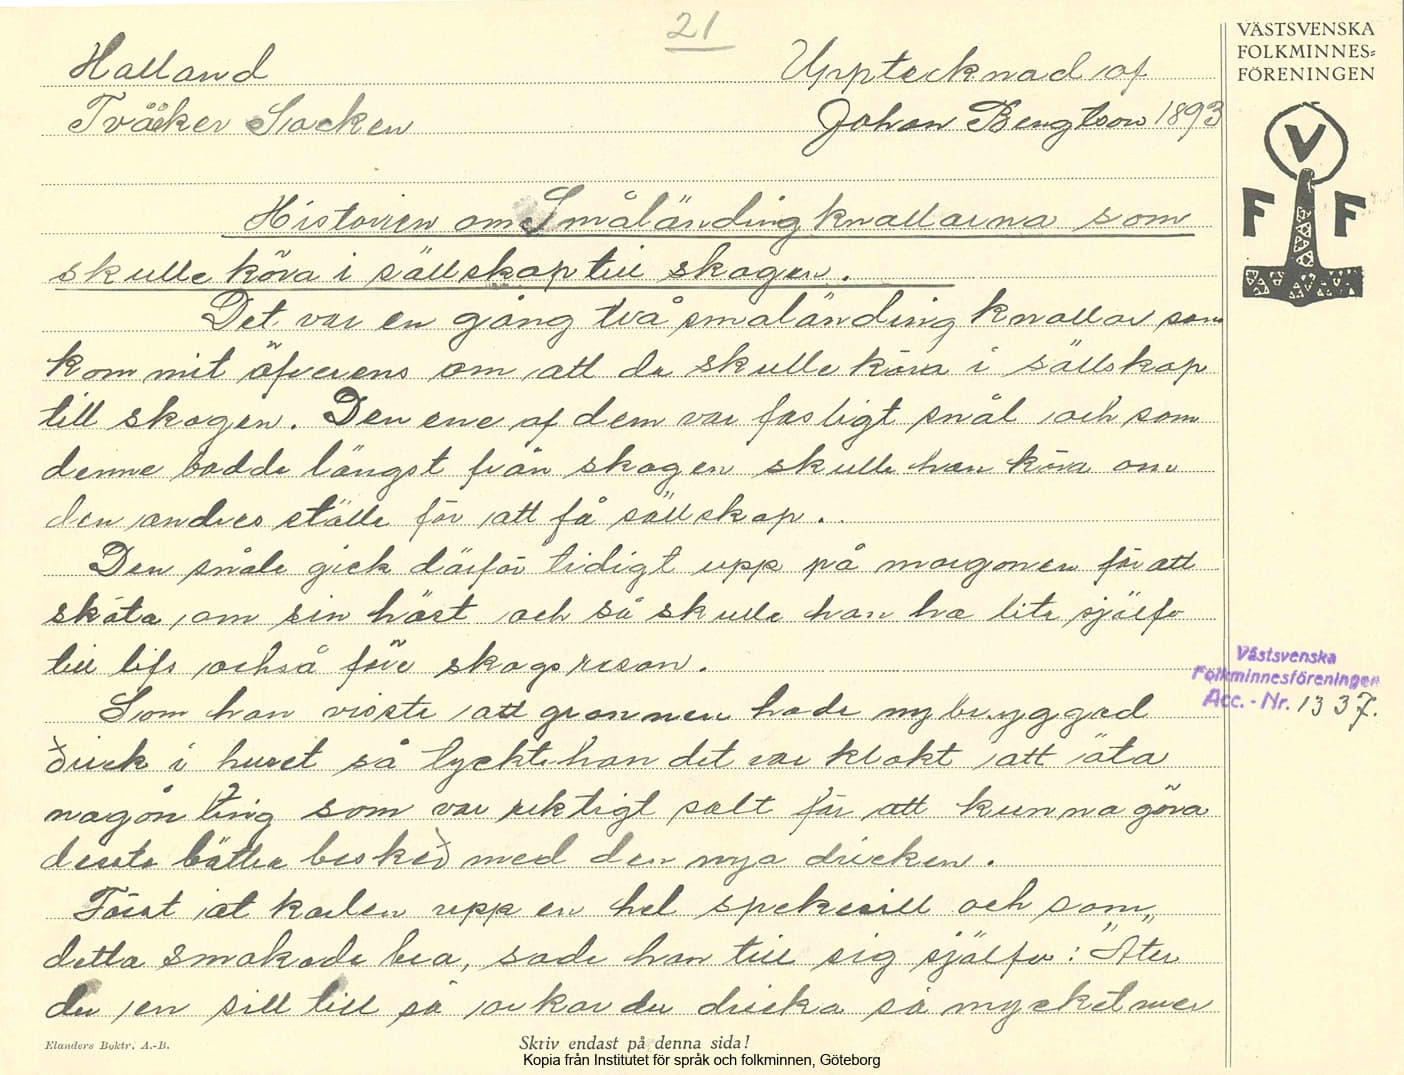 21
Halland
Tvååker Socken
Upptecknad af
Johan Bengtson 1893
VÄSTSVENSKA
FOLKMINNES=
FÖRENINGEN
V
F F
Historien om Småländingknallarna som
skulle köra i sällskap till skogen.
Det var en gång två småländing knallar som
kommit öfverens om att de skulle köra i sällskap
till skogen. Den ene af dem var fasligt snål och som
denne bodde längst från skogen skulle han köra om
den andres ställe för att få sällskap.
Den snåle gick därför tidigt upp på morgonen för att
sköta om sin häst och så skulle han ha lite sjelf
till lifs också före skogsresan.
Som han visste att grannen hade nybryggad
drick i huset så tyckte han det var klokt att äta
någonting som var riktigt salt för att kunna göra
desste bättre besked med den nya dricken.
Först åt karlen upp en hel spekesill och som
detta smakade bra, sade han till sig själfv: "Äter
du en sill till så orkar du dricka så mycket mer
Västsvenska
Folkminnesföreningen
Acc.-Nr. 1337.
Elanders Boktr. A.-B.
Skriv endast på denna sida!
Kopia från Institutet för språk och folkminnen, Göteborg